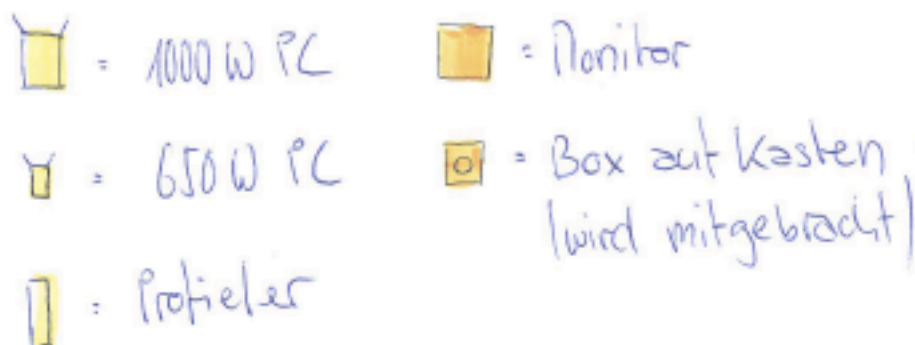 = 1000 W PC
= 650 W PC
= Profieler
= Monitor
= Box auf Kasten
(wird mitgebracht)